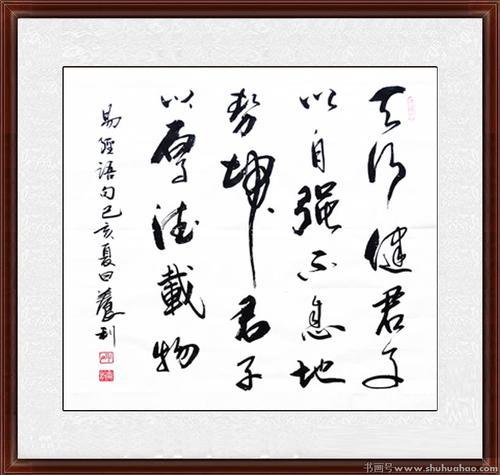 天行健君子
以自强不息地
势坤君子
以厚德載物
易經語句己亥夏田慧利
书画号www.shuhuahao.com